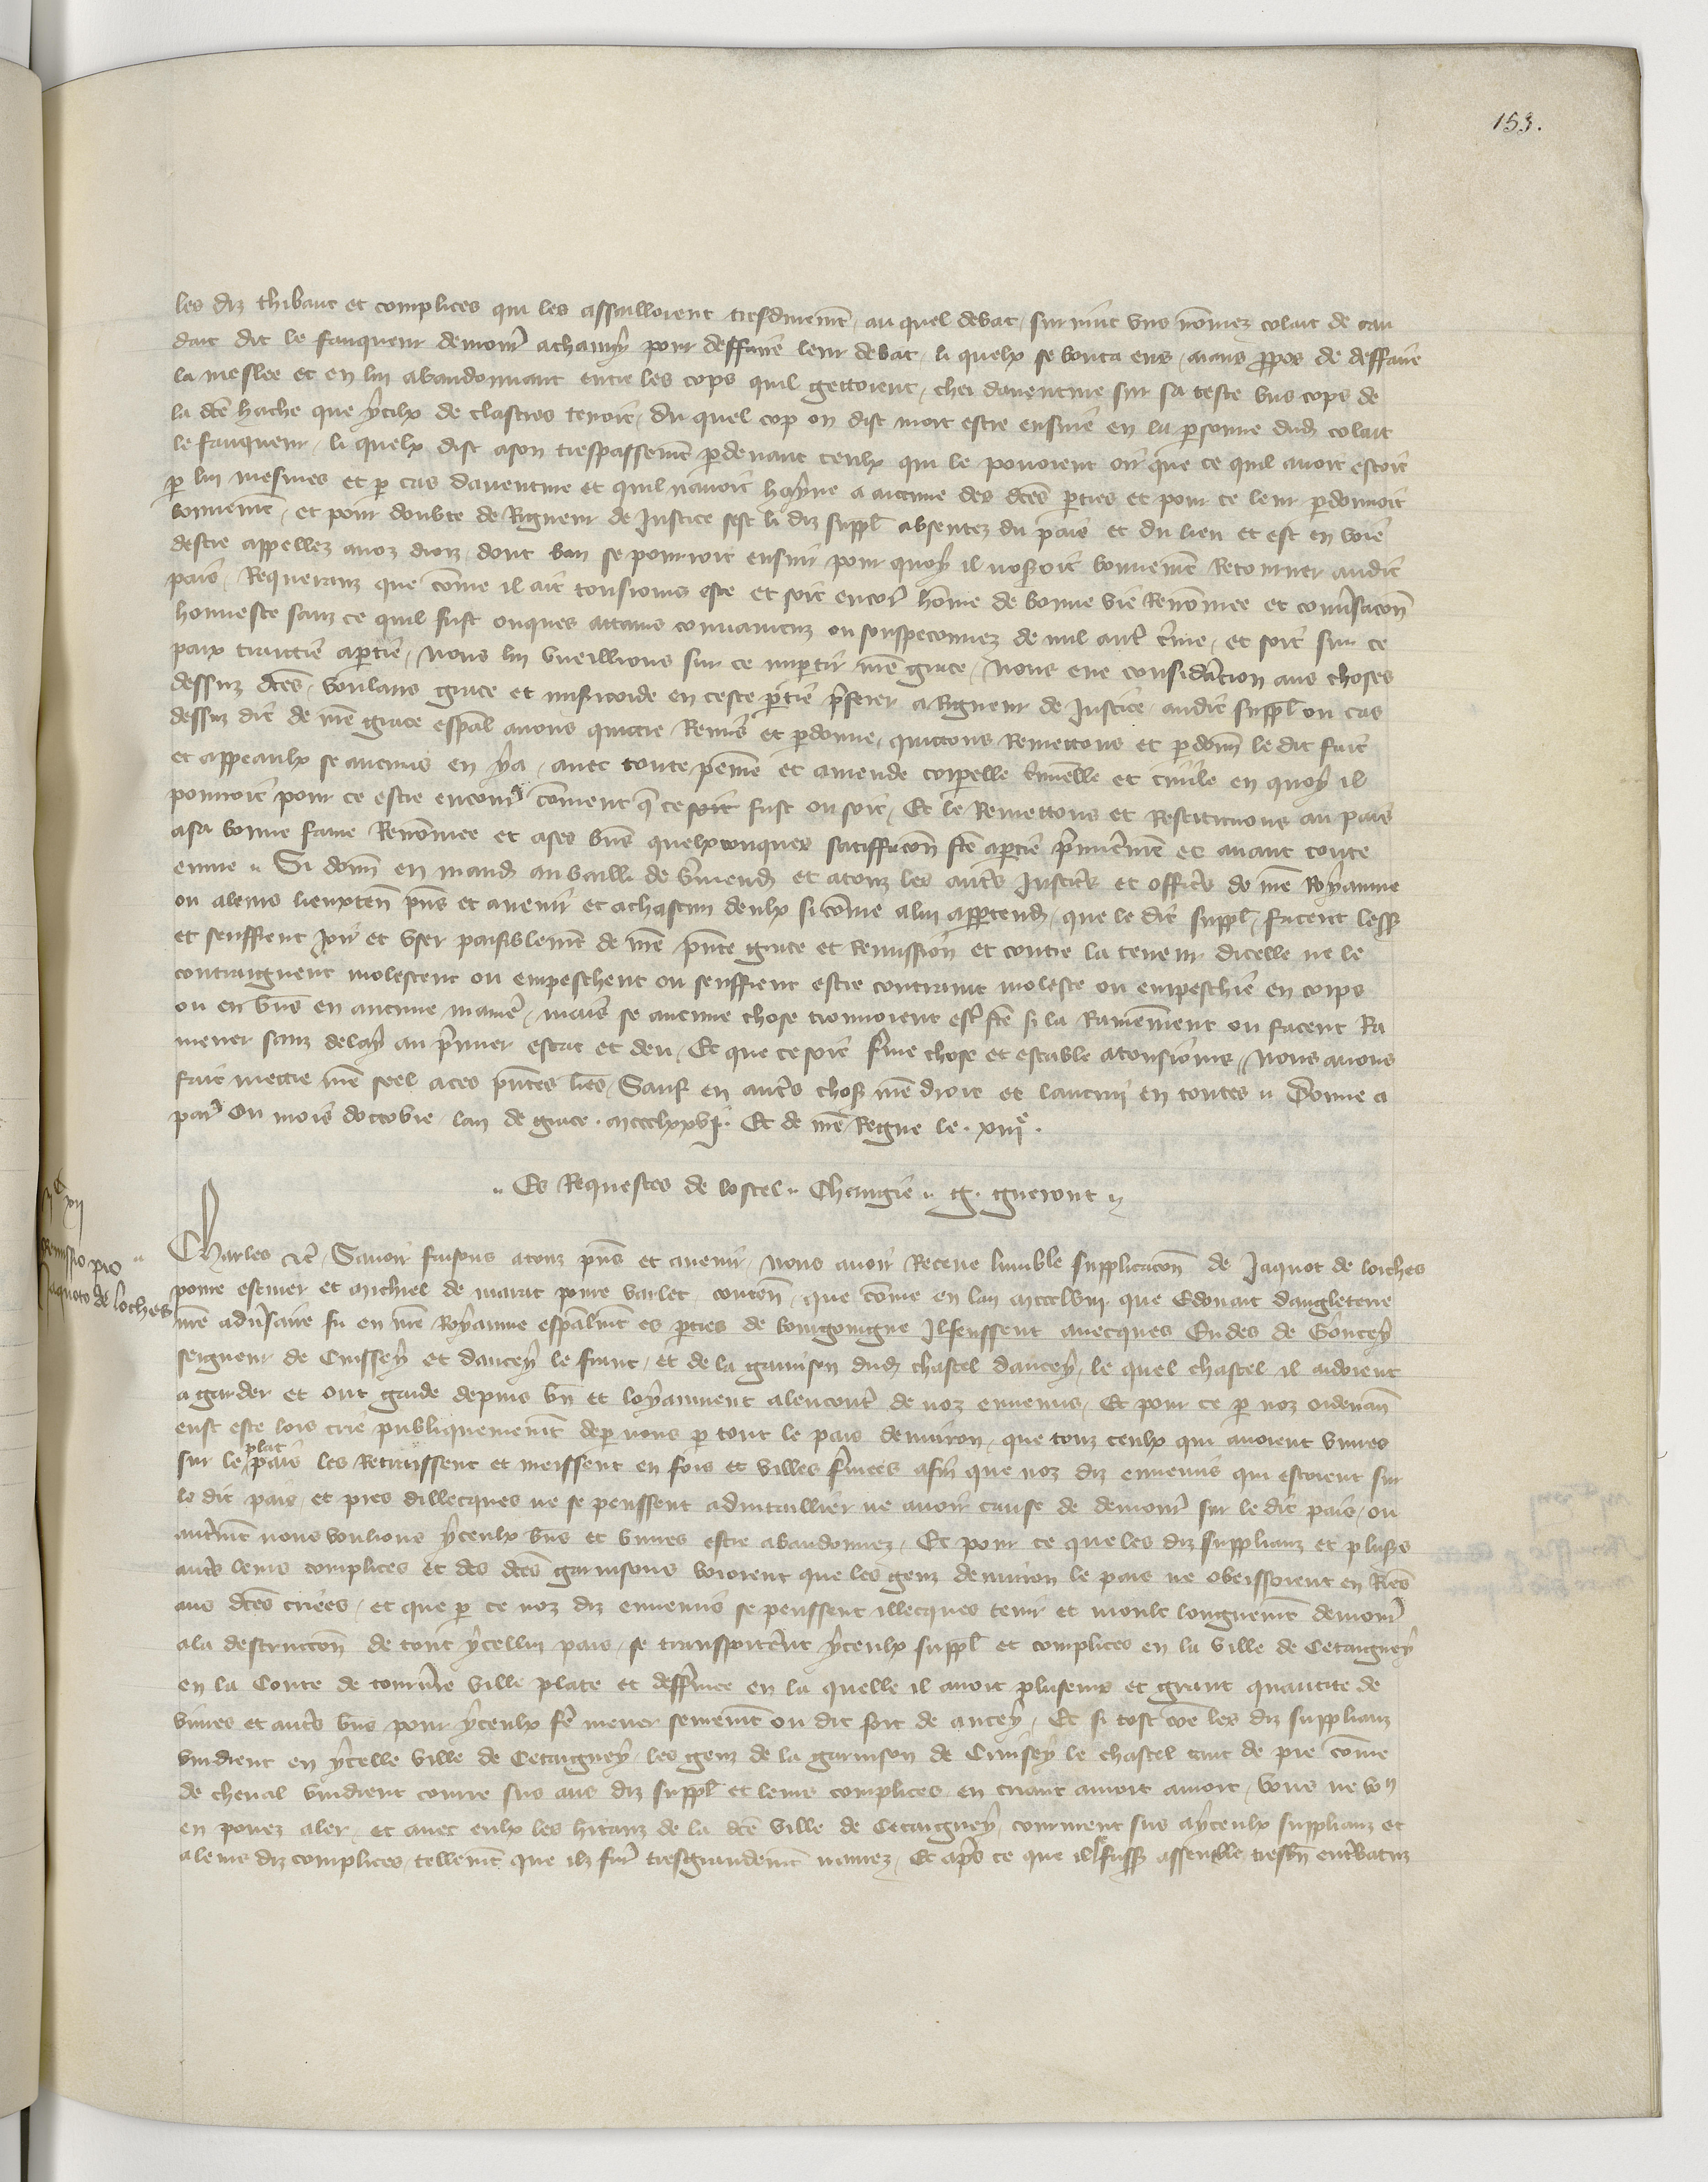 153.
les diz thibaut et complices qui les assailloient tresdurem̄t, au quel debat, survint uns nōmez colart de cau
dart dit le fauqueur demour̄ a chauny pour deffaire leur debat, li quelx se bouta ens, aians ꝓpos de deffaire
la meslee et en lui abandonnant entre les cops quil gettoient, chei daventure sur sa teste uns cops de
la dc̄e hache que ycilx de clastres tenoit, du quel cop on dist mort estre ensuie en la ꝑsonne dud colart
le fauqueur, li quelx dist a son trespassem̄t ꝑdevant ceulx qui le povoient oir que ce quil avoit estoit
ꝑ lui mesmes et ꝑ cas daventure et quil navoit hayne a aucune des dc̄es ꝑties et pour ce leur ꝑdonnoit
bonnem̄t, et pour doubte de Rigueur de Justice sest li diz suppl̄ absentez du pais et du lieu et est en voie
destre appellez a noz droiz dont ban se pourroit ensuir pour quoy il noseroit bonnement Retourner audit
pais, Requeranz que cōme il ait tousiours este et soit encor̄ hōme de bonne vie Renōmee et conv̄sacōn
honneste sanz ce quil fust onques attains convaincuz ou souspeconnez de nul autr̄ crime, et soit sur ce
paix traittie a ꝑtie, Nous lui vueillions sur ce impartir n̄re grace, Nous eue consideracion aus choses
dessuz dc̄es, voulans grace et misericorde en ceste ꝑtie p̄ferer a Rigueur de Justice audit suppl̄ ou cas
dessuz dit de n̄re grace esp̄al avons quictie Remis et ꝑdonne, quictons Remettons et ꝑdonn̄ le dit fait
et appeaulx se aucuns en y a, avec toute peinne et amende corporelle cr̄minelle et civile en quoy il
pourroit pour ce estre encour̄ cōment q̄ ce soit fust ou soit, Et le Remettons et Restituons au pais
a sa bonne fame Renōmee et a ses bn̄s quelxconques satiffacōn fc̄e a ꝑtie p̄mier̄ment et avant toute
euvre .. Si donn̄ en mand au bailli de v̄mend et a touz les autr̄s Justic̄rs et offic̄rs de n̄re Royaume
ou a leurs lieuxten̄ pn̄s et avenir et a chascun deulx si cōme a lui apꝑtend, que le dit suppl̄, facent less̄
et seuffrent Joir et user paisiblem̄t de n̄re pn̄te grace et Remission et contre la teneur dicelle ne le
contraignent molestent ou empeschent ou seuffrent estre contraint moleste ou empeschie en corps
ou en bn̄s en aucune manier̄, mais se aucune chose trouvoient estr̄ fc̄e si la Ramennent ou facent Ra
mener sanz delay au p̄mier estat et deu, Et que ce soit ferme chose et estable a tousiours, Nous avons
fait mettre n̄re seel a ces pn̄tes l̄res, Sauf en autr̄s choses n̄re droit et lautrui en toutes .. Donne a
par̄ Ou mois doctobre lan de grace . mccclxxvj. Et de n̄re Regne le . xiije.
.. Es Requestes de lostel .. Changie .. G. gueront ..
ijc xij
Remissio pro
Jaquoto de loiches
Charles &c̄, Savoir faisons a touz pn̄s et avenir, Nous avoir Receue lumble supplicacōn de Jaquot de loiches
povre escuier et Michiel de marat povre varlet, conten̄, que cōme en lan mccclviij que Edouart dangleterre
n̄re adv̄saire fu en n̄re Royaume esp̄alm̄t es ꝑties de bourgoingne Ilz feussent avecques Eudes de Goucey
seigneur de Cuissey et dancey le franc, et de la garnison dud chastel dancey, le quel chastel il aidoient
a garder et ont garde depuis bn̄ et loyaument a lencontr̄ de noz ennemis, Et pour ce ꝑ noz ordenān
eust este lors crie publiquement de ꝑ nous ꝑ tout le pais denviron, que touz ceulx qui avoient vivres
sur le plat pais les Retraissent et meissent en fors et villes fermees afin que noz diz ennemis qui estoient sur
le dit pais et pres dillecques ne se peussent advitaillier ne avoir cause de demour̄ sur le dit pais, ou
autr̄m̄t nous voulions yceulx bn̄s et vivres estre abandonnez, Et pour ce que les diz supplianz et plus̄rs
autr̄s leurs complices et des dc̄es garnisons veoient que les genz denviron le pais ne obeissoient en Riēs
aus dc̄es criees, et que ꝑ ce noz diz ennemis se peussent illecques tenir et moult longuem̄t demour̄
a la destruccōn de tout ycellui pais, se transporter̄nt yceulx suppl̄ et complices en la ville de Cetaigney
en la Conte de tonnerre ville plate et deffermee en la quelle il avoit pluseurs et grant quantite de
vivres et autr̄s bn̄s pour yceulx fer̄ mener seurem̄t ou dit fort de ancey, Et si tost cōe les diz supplianz
vindrent en ycelle ville de Cetaigney, les genz de la garnison de Crusey le chastel tant de pie cōme
de cheval vindrent courre sus aus diz suppl̄ et leurs complices en criant a mort a mort, vous ne vo9
en povez aler, et avec eulx les h̄itanz de la dc̄e ville de Cetaigney, coururent sus a yceulx supplianz et
a leurs diz complices, tellem̄t que ilz fur̄ tresgrandem̄t navrez, Et ap̄s ce que il se fuss̄ assemble tresbn̄ entrebatuz